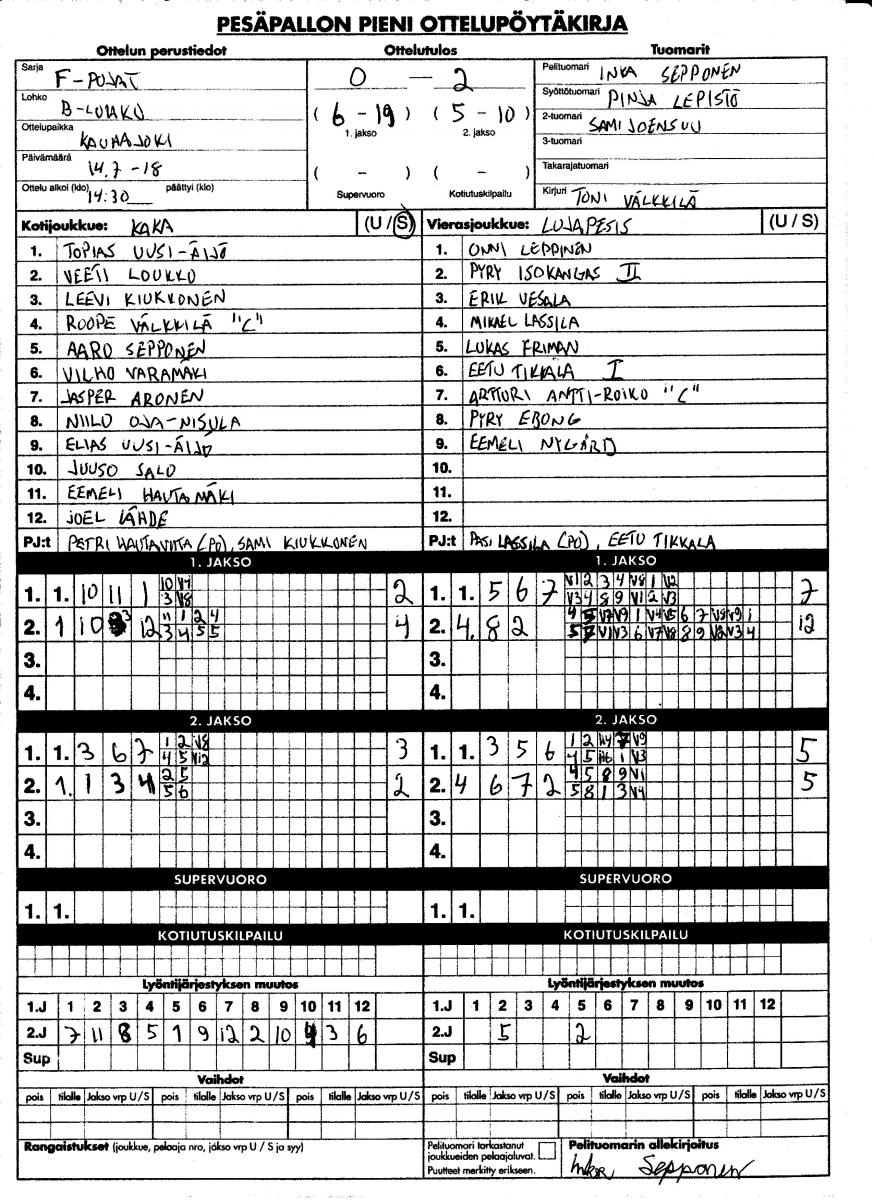 PESÄPALLON PIENI OTTELUPÖYTÄKIRJA
Ottelun perustiedot
Sarja F-POJAT
Lohko B-LOHKO
Ottelupaikka KAUHAJOKI
Päivämäärä 14.7 -18
Ottelu alkoi (klo) 14:30 päättyi (klo)
Ottelutulos
0 - 2
( 6 - 19 ) ( 5 - 10 )
1. jakso 2. jakso
( - ) ( - )
Supervuoro Kotiutuskilpailu
Tuomarit
Pelituomari INKA SEPPONEN
Syöttötuomari PINJA LEPISTÖ
2-tuomari SAMI JOENSUU
3-tuomari
Takarajatuomari
Kirjuri TONI VÄLKKILÄ
Kotijoukkue: KAKA (U / S)
1. TOPIAS UUSI-ÄIJÖ
2. VEETI LOUKKO
3. LEEVI KIUKKONEN
4. ROOPE VÄLKKILÄ "C"
5. AARO SEPPONEN
6. VILHO VARAMÄKI
7. JASPER ARONEN
8. NIILO OJA-NISULA
9. ELIAS UUSI-ÄIJÖ
10. JUUSO SALO
11. EEMELI HAUTAMÄKI
12. JOEL LÄHDE
PJ:t PETRI HAUTAVIITA (PO), SAMI KIUKKONEN
Vierasjoukkue: LUJAPESIS (U / S)
1. ONNI LEPPINEN
2. PYRY ISOKANGAS II
3. ERIK VESALA
4. MIKAEL LASSILA
5. LUKAS FRIMAN
6. EETU TIKKALA I
7. ARTTURI ANTTI-ROIKO "C"
8. PYRY EBONG
9. EEMELI NYGÅRD
10.
11.
12.
PJ:t PASI LASSILA (PO), EETU TIKKALA
1. JAKSO
1. 1. 10 11 1 10 V7 2
3 V8
2. 1 10 3 12 11 1 2 4 4
3 4 5 5
3.
4.
1. JAKSO
1. 1. 5 6 7 V1 2 3 4 V8 1 V2 7
V3 4 8 9 V1 2 V3
2. 4. 8 2 4 5 V7 V9 1 V4 V5 6 7 V8 V9 1 12
5 7 V1 V3 6 V7 V8 8 9 V2 V3 4
3.
4.
2. JAKSO
1. 1. 3 6 7 1 2 V8 3
4 5 V12
2. 1. 1 3 4 2 5 2
5 6
3.
4.
2. JAKSO
1. 1. 3 5 6 1 2 7 V9 5
4 5 1 V3
2. 4 6 7 2 4 5 8 9 V1 5
5 8 1 3 V4
3.
4.
SUPERVUORO
1. 1.
SUPERVUORO
1. 1.
KOTIUTUSKILPAILU
KOTIUTUSKILPAILU
Lyöntijärjestyksen muutos
1.J 1 2 3 4 5 6 7 8 9 10 11 12
2.J 7 11 8 5 1 9 12 2 10 4 3 6
Sup
Lyöntijärjestyksen muutos
1.J 1 2 3 4 5 6 7 8 9 10 11 12
2.J 5 2
Sup
Vaihdot
pois tilalle Jakso vrp U / S pois tilalle Jakso vrp U / S pois tilalle Jakso vrp U / S
Vaihdot
pois tilalle Jakso vrp U / S pois tilalle Jakso vrp U / S pois tilalle Jakso vrp U / S
Rangaistukset (joukkue, pelaaja nro, jakso vrp U / S ja syy)
Pelituomari tarkastanut
joukkueiden pelaajaluvat.
Puutteet merkitty erikseen.
Pelituomarin allekirjoitus
Inka Sepponen